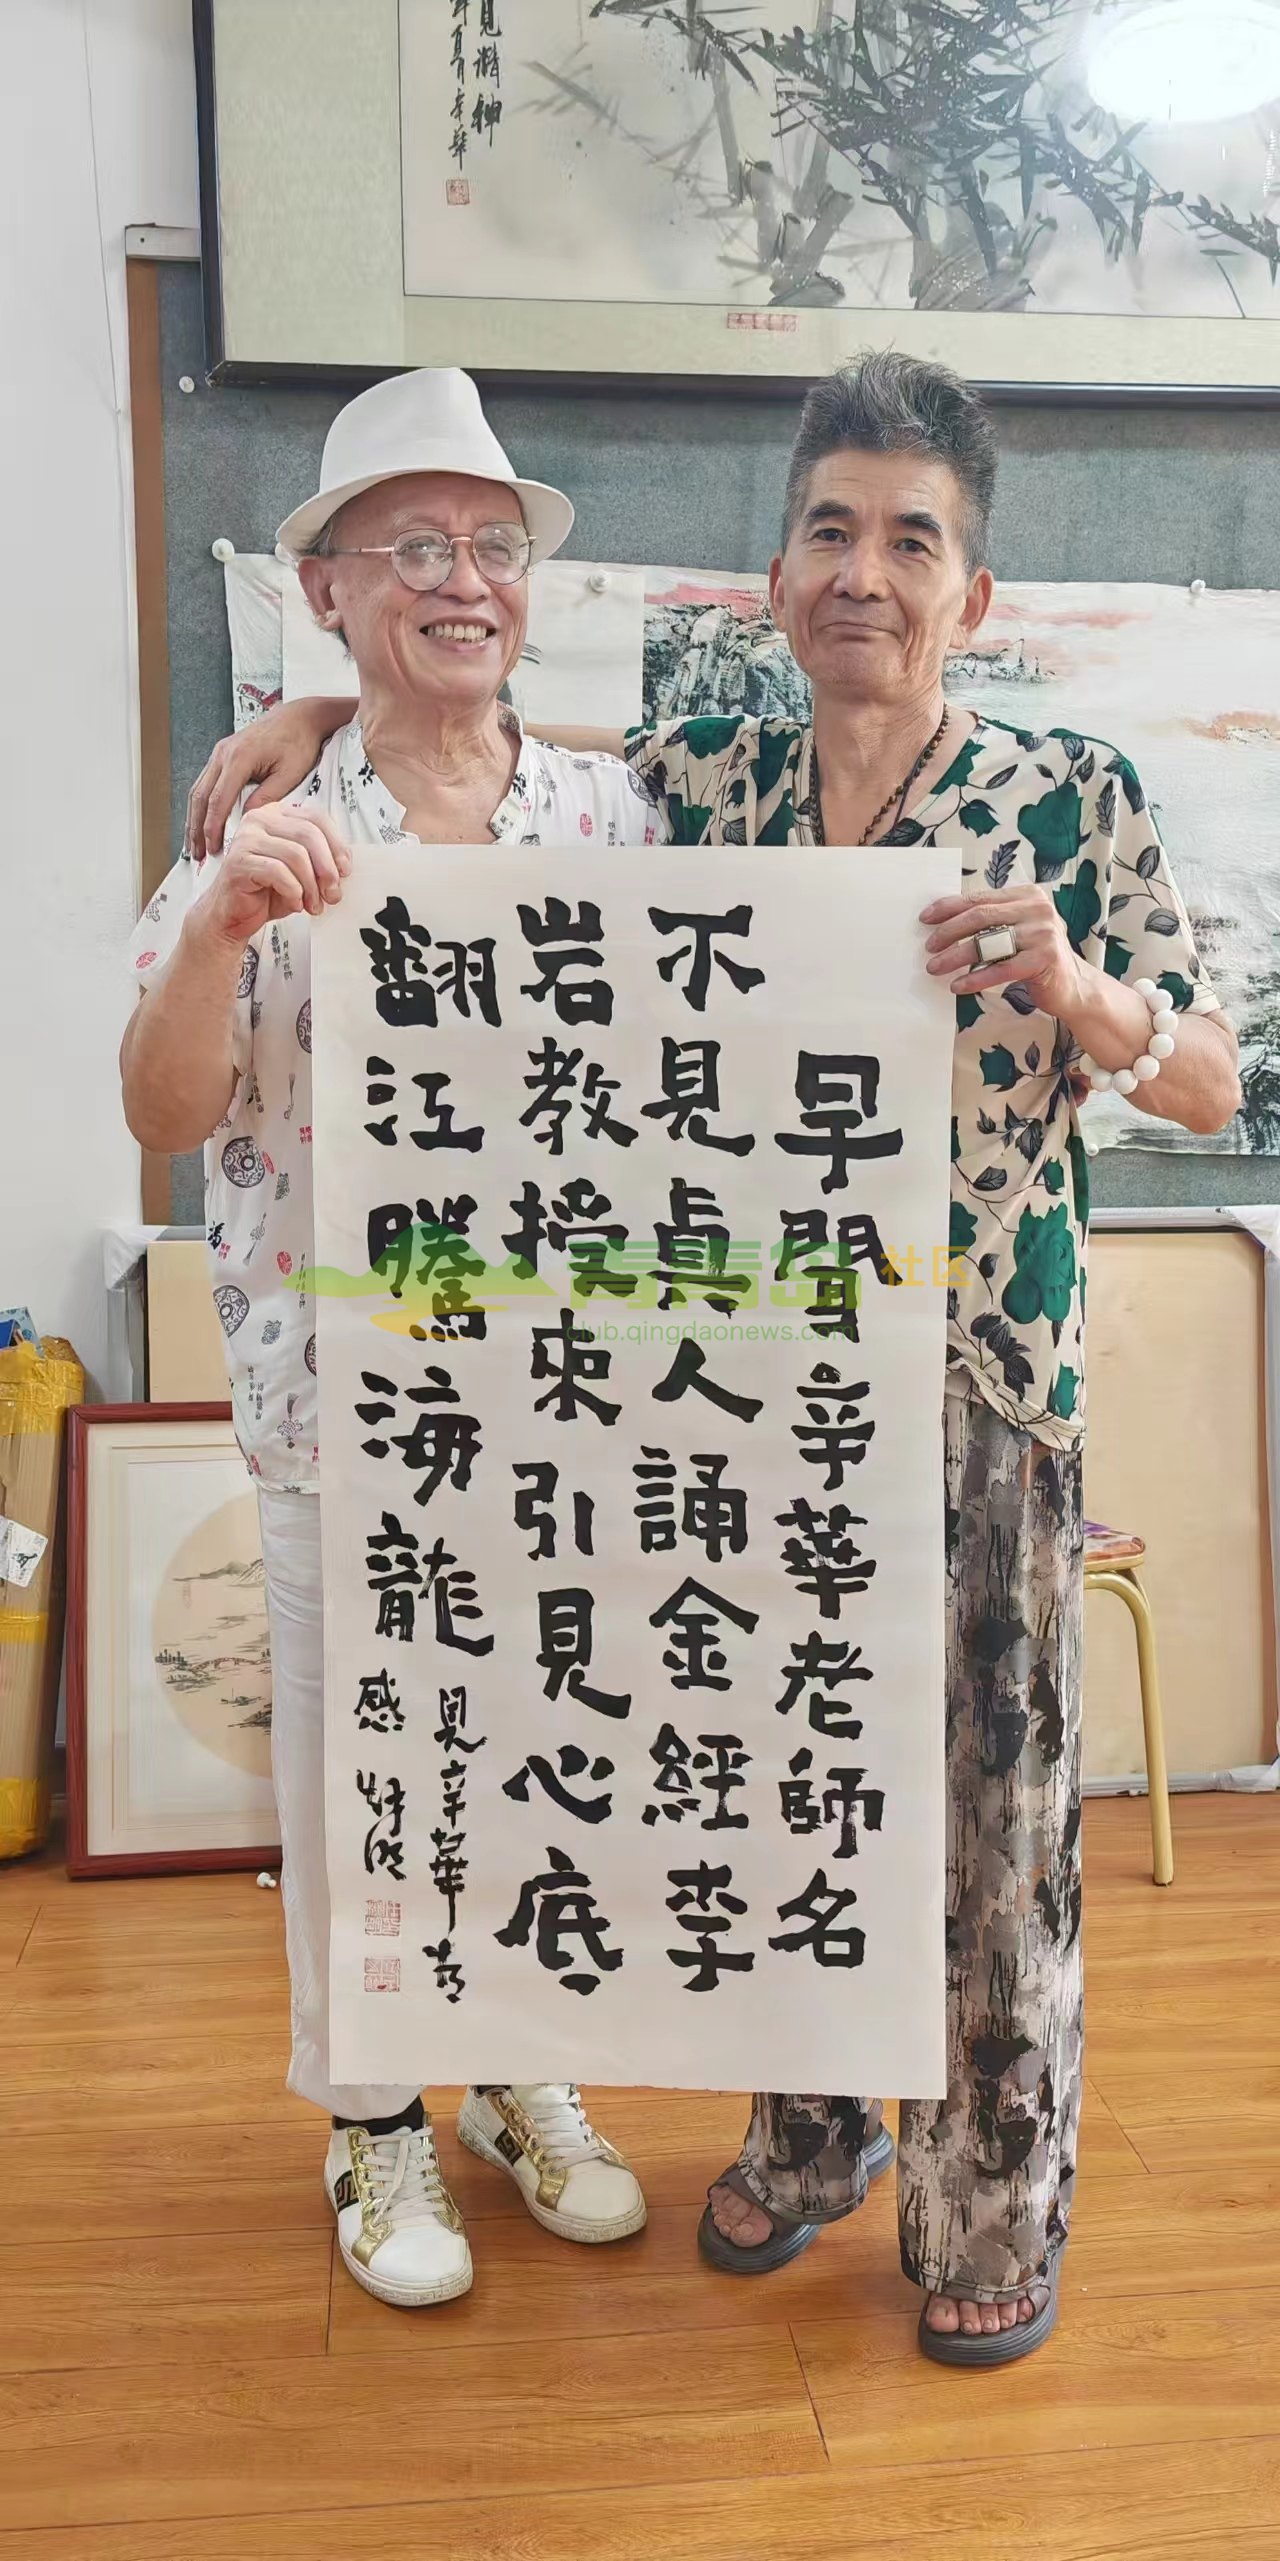 見精神
年夏月辛華
早聞辛華老師名
不見真人誦金經李
岩教授來引見心底
翻江騰海龍
見辛華有
感
青青岛社区
club.qingdaonews.com